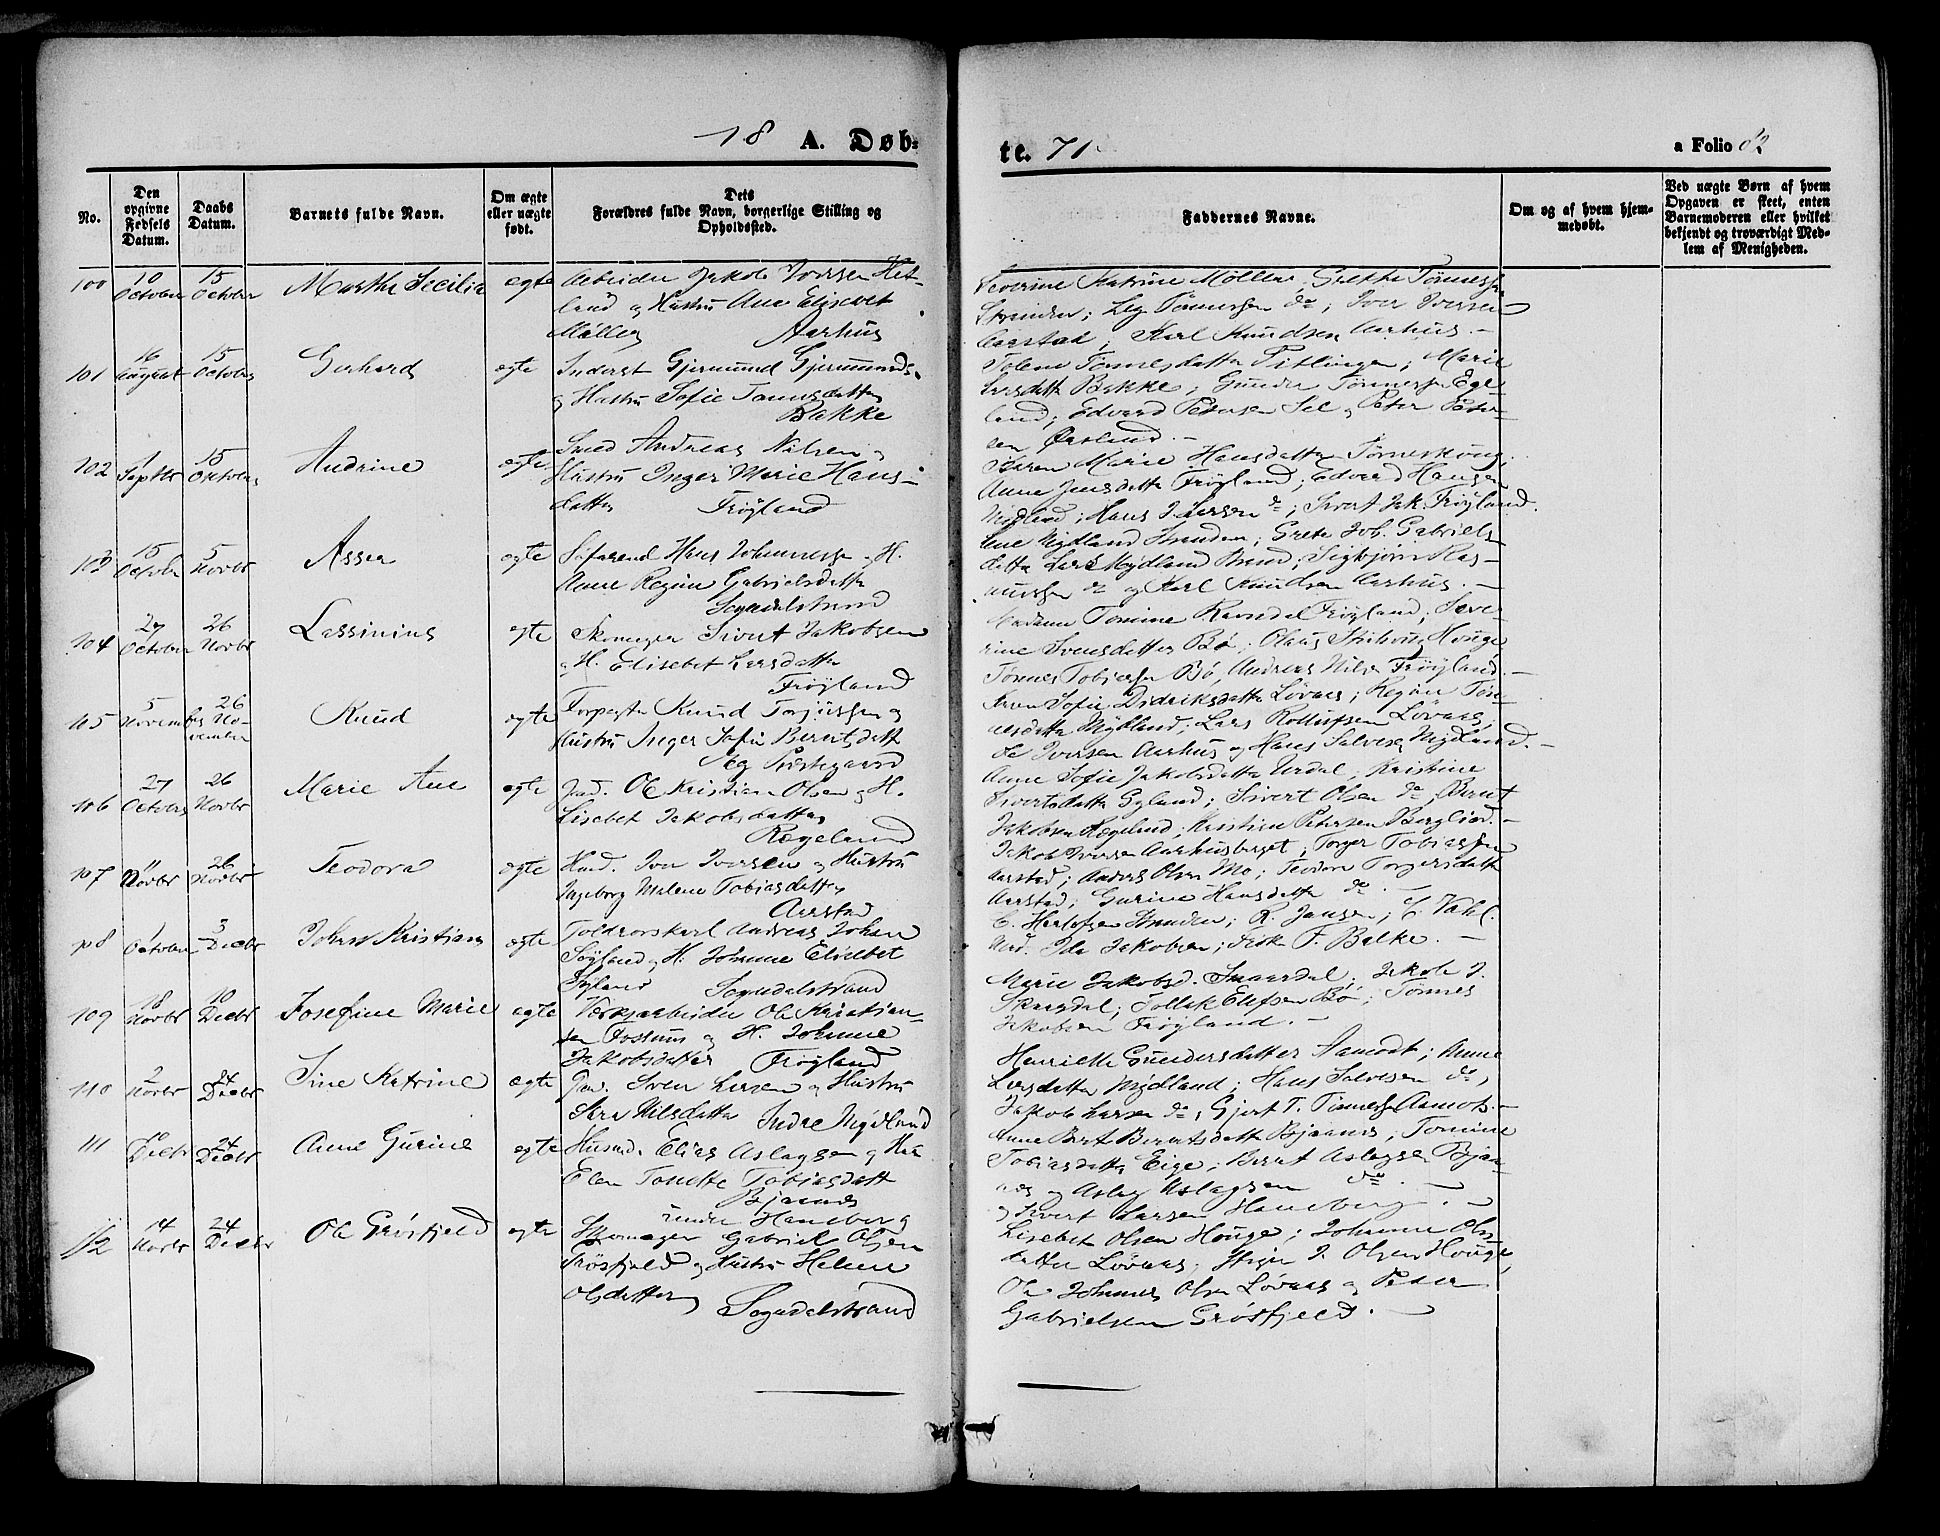 18 A. Døb-
te. 71
a Folio 82
No.
Den opgivne Fødsels Datum.
Daabs Datum.
Barnets fulde Navn.
Om ægte eller uægte født.
Dets Forældres fulde Navn, borgerlige Stilling og Opholdssted.
Faddernes Navne.
Om og af hvem hjemmedøbt.
Ved uægte Børn af hvem Opgaven er skeet, enten Barnemoderen eller hvilket bekjendt og troværdigt Medlem af Menigheden.
100 10 October 15 October Marthe Secilia egte Arbeider Jakob Iversen Het-
land og Hustru Ane Elisebet
Møller Aarhus
Severine Katrine Møller,
Stranden; Tønnesen do; Iver Iversen
Aarstad; Karl Knudsen Aarhus. -
101 16 August 15 October Gerhard egte Inderst Gjermund Gjermunds.
og Hustru Sofie Tønnesdatter
Bakke
Tolene Tønnesdatter Fitlingen; Marie
Larsdatter Bakke; Gunder Tønnesen Ege-
land; Edvard Petersen Sel og Peter Peter-
sen Ørsland. -
102 1 Septbr 15 October Andrine egte Smed Andreas Nilsen og
Hustru Inger Marie Hans-
datter Frøyland
Karen Marie Hansdatter
Anne Jensdatter Frøyland; Edvard Hansen
Mydland; Hans J. Larsen do; Sivert Jak. Frøyland.
103 15 October 5 Novbr Asser egte Hans Johannessen og H.
Anne Regine Gabrielsdatter
Sogndalstrand
Ane Mydland Stranden; Grete Joh. Gabriels-
datter Lars Mydland Strand; Sigbjørn Ras-
mussen do og Karl Knudsen Aarhus. -
104 27 October 26 Novbr Lassinius egte Skomager Sivert Jakobsen
og H. Elisebet Larsdatter
Frøyland
Madame Tomine Ravndal Frøyland; Seve-
rine Svensdatter Bø; Olaus Houge
Tønnes Tobiassen Bø, Andreas Nils. Frøyland. -
105 5 November 26 November Knud egte Forpagter Knud Torjussen og
Hustru Inger Sofie Berntsdatt
Aaren Sofie Didriksdatter Løvaas; Regine Tøn-
nesdatter Mydland; Lars Rolleifsen Løvaas;
Ole Iversen Aarhus og Hans Salvesen Mydland. -
106 27 October 26 Novbr Marie Ane egte Gad. Ole Kristian Olsen og H.
Lisebet Jakobsdatter
Rægeland
Anne Sofie Jakobsdatter Urdal; Kristine
Sivertsdatter Gyland; Sivert Olsen do; Bernt
Jakobsen Rægeland; Kristian Petersen Berglien. -
107 11 Novbr 26 Novbr Teodora egte Huusd. Iver Iversen og Hustru
Ingeborg Malene Tobiasdatter
Aarstad
Jakob Iversen Aarhusberget, Torger Tobiassen
Aarstad; Anders Olsen Mo; Teodore Torgersdatter
Aarstad; Gurine Hansdatter do.
108 1 October 3 Decbr Johan Kristian egte Toldrorskarl Andreas Johan
Søyland og H. Johanne Elisebet
Søyland Sogndalstrand
C. Herlofsen Stranden; R. Jansen; C. Vahl.
And. Ida Jakobsen; Frøk. F. Balke. -
109 18 Novbr 10 Decbr Josefine Marie egte Verksarbeider Ole Kristian-
sen Fossum og H. Johanne
Jakobsdatter Frøyland
Marie Jakobsd. Skaardal; Jakob J.
Skaardal; Tollak Elefsen Bø; Tønnes
Jakobsen Frøyland. -
110 2 Novbr 24 Decbr Sine Katrine egte Gad. Sven Larsen og Hustru
Sara Nilsdatter Indre Mydland
Henriette Gundersdatter Aamodt; Anne
Larsdatter Mydland; Hans Salvesen do,
Jakob Larsen do, Gjert T. Tønnesen Aamot. -
111 Decbr 24 Decbr Anne Gurine egte Husmd. Elias Aslagsen og Hu
Elen Tonette Tobiasdatt
Bjaanes
under Haneberg
Anne Bert Berntsdatter Bjaanes; Tomine
Tobiasdatter Eige; Bernt Aslagsen Bjaa-
nes og Aslag Aslagsen do. -
og Sivert Larsen Haneberg. -
112 14 Novbr 24 Decbr Ole Grøsfjeld egte Skomager Gabriel Olsen
Grøsfjeld og Hustru Helene
Olsdatter Sogndalstrand
Lisebet Olsen Houge; Johanne Ols-
datter Løvaas; J. Olsen Houge,
Ole Johannes Olsen Løvaas og Peder
Gabrielsen Grøsfjeld. -